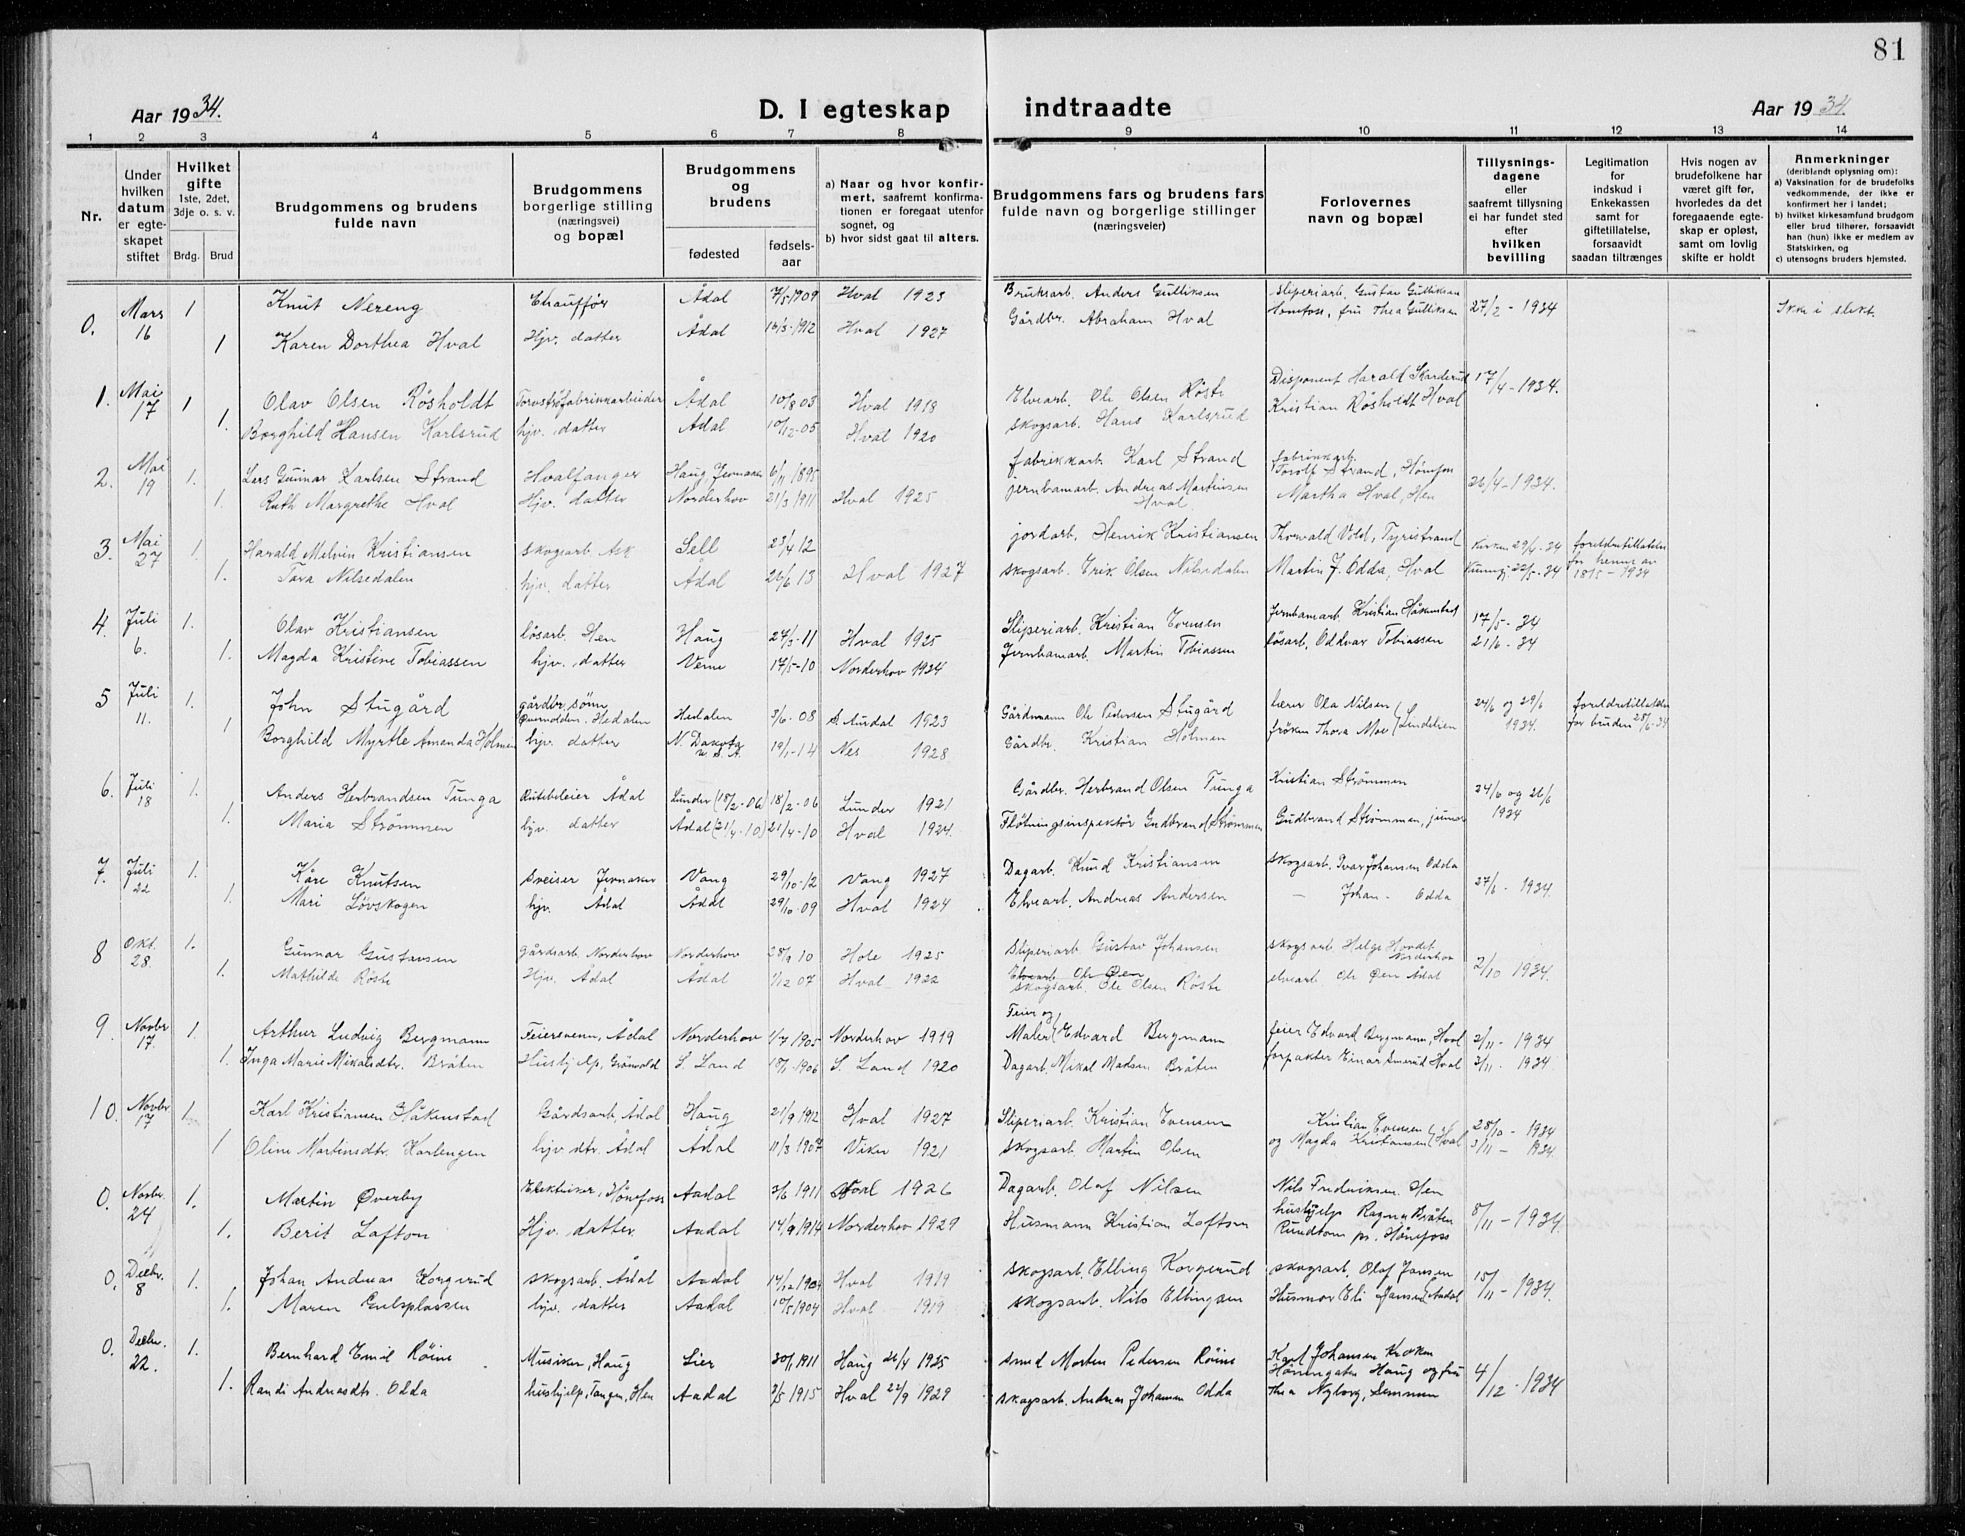 81
Aar 1934.
D. I egteskap indtraadte
Aar 1934.
1 2 3 4 5 6 7 8 9 10 11 12 13 14
Nr.
Under hvilken datum er egte-skapet stiftet
Hvilket gifte
1ste, 2det, 3dje o. s. v.
Brdg. Brud
Brudgommens og brudens fulde navn
Brudgommens borgerlige stilling (næringsvei) og bopæl
Brudgommens og brudens
fødested
fødsels-aar
a) Naar og hvor konfir-mert, saafremt konfirma-tionen er foregaat utenfor sognet, og
b) hvor sidst gaat til alters.
Brudgommens fars og brudens fars fulde navn og borgerlige stillinger (næringsveier)
Forlovernes navn og bopæl
Tillysnings-dagene eller saafremt tillysning ei har fundet sted efter hvilken bevilling
Legitimation for indskud i Enkekassen samt for giftetillatelse, forsaavidt saadan tiltrænges
Hvis nogen av brudefolkene har været gift før, hvorledes da det foregaaende egte-skap er opløst, samt om lovlig skifte er holdt
Anmerkninger (deriblandt oplysning om):
a) Vaksination for de brudefolks vedkommende, der ikke er konfirmert her i landet;
b) hvilket kirkesamfund brudgom eller brud tilhører, forsaavidt han (hun) ikke er medlem av Statskirken, og
c) utensogns bruders hjemsted.
0. Mars 16 1 Knut Nereng Chauffør Ådal 7/5 1909 Hval 1923 Bruksarb. Anders Gulliksen Sliperiarb. Gustav Gulliksen 27/2 - 1934 Ikke i slekt.
1 Karen Dorthea Hval Hjv. datter Ådal 16/3-1912 Hval 1927 Gårdbr. Abraham Hval Hønefoss, fru Thea Gulliksen
1. Mai 17 1 Olav Olsen Rösholdt Torvströfabrikkarbeider Ådal 10/8 03 Hval 1918 Elvearb. Ole Olsen Röste Disponent Harald Skarderud 17/4 - 1934.
1. Borghild Hansen Karlsrud hjv. datter Ådal 10/12-05 Hval 1920 skogsarb. Hans Karlsrud Kristian Rösholdt Hval
2. Mai 19 1. Lars Gunnar Karlsen Strand Hvalfanger Haug, Jevnaker 6/11 1895 fabrikkarb. Karl Strand fabrikkarb. Torolf Strand, Hønefoss 26/4 - 1934.
1. Ruth Margrethe Hval Hjv. datter Norderhov 21/3 1911 Hval 1925 jernbanearb. Andreas Martinsen Hval Martha Hval, Hen
3. Mai 27 1. Harald Melvin Kristiansen skogsarb. Ask Sell 23/4 12 jordarb. Henrik Kristiansen Thorvald Vold, Tyristrand Kirken 29/4-34 foreldretillatelse
1. Tora Nilsedalen hjv. datter Ådal 26/6 13 Hval 1927 skogsarb. Erik Olsen Nilsedalen Martin J. Odda, Hval 22/5-34 for henne av 18/5-1934
4. Juli 6. 1. Olav Kristiansen løsarb. Hen Haug 27/3-11 Hval 1925 Sliperiarb. Kristian Evensen Jernbanearb. Kristian Håkenstad 17/5 - 34
1. Magda Kristine Tobiassen hjv. datter Veme 17/5-10 Norderhov 1924 Jernbanearb. Martin Tobiassen løsarb. Oddvar Tobiassen 21/6 - 34
5 Juli 11. 1. John Stugård gårdbr. sönn, Hedalen Hedalen 3/6-08 S. Aurdal 1923 Gårdmann Ole Pedersen Stugård lærer Ola Nilsen 24/6 og 29/6 foreldretillatelse
1 Borghild Myrtle Amenda Holmen hjv. datter N. Dakota U. S. A. 19/1-14 Nes 1928 Gårdbr. Kristian Holmen frøken Thora Moe Lindelien 1934. for bruden 28/6-34
6. Juli 18 1. Anders Herbrandsen Tunga Rutebileier Ådal Lunder (18/2-06) 18/2-06 Lunder 1921 Gårdbr. Herbrand Olsen Tunga Kristian Strømmen 24/6 og 26/6
1. Maria Strømmen hjv. datter Ådal (21/4-10) 21/4-10 Hval 1924. Fløtningsinspektør Gudbrand Strømmen Gudbrand Strømmen, junior 1934
7. Juli 22 1. Kåre Knutsen Sveiser Jevnaker Vang 29/10-12 Vang 1927 Dagarb. Knud Kristiansen skogsarb. Ivar Johansen Odda 27/6 - 1934.
1. Mari Lövskogen hjv. Ådal Ådal 29/10-09 Hval 1924 Elvearb. Andreas Andersen — Johan - Odda
8 Okt. 28. 1. Gunnar Gustavsen gårdsarb. Norderhov Norderhov 28/9 10 Hole 1925 Sliperiarb. Gustav Johansen skogsarb. Helge Hovdet Norderhov 2/10 1934.
1. Mathilde Röste Hjv. Ådal Ådal 1/12 07 Hval 1922 Elvearb. Ole Øen skogsarb. Ole Olsen Röste elvearb. Ole Øen Ådal
9. Novbr 17. 1. Arthur Ludvig Bergmann Feiersvenn, Ådal Norderhov 1/7 1905 Norderhov 1919 Feier og Maler Edvard Bergmann feier Edvard Bergmann, Hval 3/11 - 1934
1. Inga Marie Mikalsdtr. Bråten Hushjelp, Grönvold S. Land 18/1-1906 S. Land 1920 Dagarb. Mikal Madsen Bråten forpakter Einar Smerud Hval 3/11. - 1934
10. Novbr 17 1. Karl Kristiansen Håkenstad Gårdsarb, Ådal Haug 21/9 1912 Hval 1927 Sliperiarb. Kristian Evensen Kristian Evensen 28/10 - 1934
1 Oline Martinsdtr. Karlengen hjv dtr. Ådal Ådal 11/3 1907 Viker 1921 skogsarb. Martin Olsen og Magda Kristiansen Hval 3/11 - 1934.
0. Novbr. 24 1. Martin Øverby Elektriker, Hønefoss Aadal 3/6 1911 Hval 1926 Dagarb. Olaf Nilsen Nils Fredriksen Hen 8/11 - 1934.
1. Berit Lofton Hjv. datter Aadal 14/9 1914 Norderhov 1929 Husmann Kristian Loftsen hushjelp Ragna Bråten Rundtom pr. Hønefoss
0. Decbr. 8 1. Johan Andreas Korgerud skogsarb. Ådal Aadal 14/12 1904 Hval 1919 skogsarb. Elling Korgerud skogsarb. Olaf Jansen 15/11 - 1934.
1. Maren Gulsplassen hjv. datter Aadal 10/5 1904 Hval 1919 skogsarb. Nils Ellingsen Husmor Eli Jansen Aadal
0. Decbr. 22. 1. Bernhard Emil Röine Musiker, Haug Lier 30/1 1911 Haug 26/4 1925 smed Morten Pedersen Röine Karl Johansen Kroken 4/12 - 1934
1. Randi Andreasdtr. Odda hushjelp, Tangen, Hen Aadal 3/5 1915 Hval 22/9 1929 skogsarb. Andreas Johansen Odda Höningaten Haug og fru Thea Nyborg, Semmen